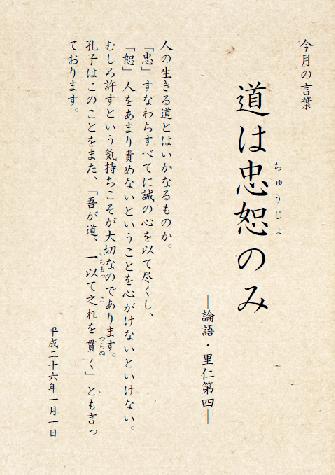 今月の言葉
道は忠恕のみ
ちゅうじょ
―論語・里仁第四―
人の生きる道とはいかなるものか。
「忠」すなわちすべてに誠の心を以て尽くし、
「恕」人をあまり責めないということを心がけないといけない。
むしろ許すという気持ちこそが大切なのであります。
孔子はこのことをまた、「吾が道、一以て之れを貫く」とも言っ
ております。
平成二十六年一月一日